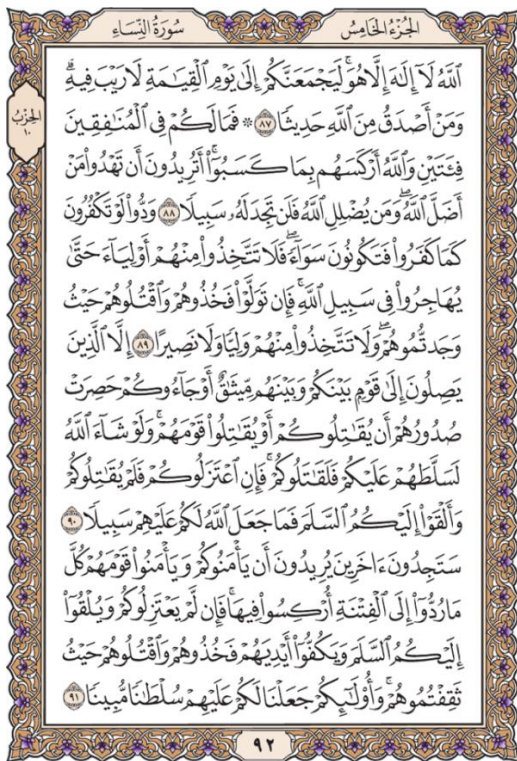 الجُزْءُ الخَامِسُ
سُورَةُ النِّسَاءِ
ٱللَّهُ لَآ إِلَٰهَ إِلَّا هُوَۚ لَيَجْمَعَنَّكُمْ إِلَىٰ يَوْمِ ٱلْقِيَٰمَةِ لَا رَيْبَ فِيهِۗ
وَمَنْ أَصْدَقُ مِنَ ٱللَّهِ حَدِيثٗا ٨٧ ۞ فَمَا لَكُمْ فِي ٱلْمُنَٰفِقِينَ
الحِزْبُ
١٠
فِئَتَيْنِ وَٱللَّهُ أَرْكَسَهُم بِمَا كَسَبُوٓاْۚ أَتُرِيدُونَ أَن تَهْدُواْ مَنْ
أَضَلَّ ٱللَّهُۖ وَمَن يُضْلِلِ ٱللَّهُ فَلَن تَجِدَ لَهُۥ سَبِيلٗا ٨٨ وَدُّواْ لَوْ تَكْفُرُونَ
كَمَا كَفَرُواْ فَتَكُونُونَ سَوَآءٗۖ فَلَا تَتَّخِذُواْ مِنْهُمْ أَوْلِيَآءَ حَتَّىٰ
يُهَاجِرُواْ فِي سَبِيلِ ٱللَّهِۚ فَإِن تَوَلَّوْاْ فَخُذُوهُمْ وَٱقْتُلُوهُمْ حَيْثُ
وَجَدتُّمُوهُمْۖ وَلَا تَتَّخِذُواْ مِنْهُمْ وَلِيّٗا وَلَا نَصِيرًا ٨٩ إِلَّا ٱلَّذِينَ
يَصِلُونَ إِلَىٰ قَوْمِۭ بَيْنَكُمْ وَبَيْنَهُم مِّيثَٰقٌ أَوْ جَآءُوكُمْ حَصِرَتْ
صُدُورُهُمْ أَن يُقَٰتِلُوكُمْ أَوْ يُقَٰتِلُواْ قَوْمَهُمْۚ وَلَوْ شَآءَ ٱللَّهُ
لَسَلَّطَهُمْ عَلَيْكُمْ فَلَقَٰتَلُوكُمْۚ فَإِنِ ٱعْتَزَلُوكُمْ فَلَمْ يُقَٰتِلُوكُمْ
وَأَلْقَوْاْ إِلَيْكُمُ ٱلسَّلَمَ فَمَا جَعَلَ ٱللَّهُ لَكُمْ عَلَيْهِمْ سَبِيلٗا ٩٠
سَتَجِدُونَ ءَاخَرِينَ يُرِيدُونَ أَن يَأْمَنُوكُمْ وَيَأْمَنُواْ قَوْمَهُمْ كُلَّ
مَا رُدُّوٓاْ إِلَى ٱلْفِتْنَةِ أُرْكِسُواْ فِيهَاۚ فَإِن لَّمْ يَعْتَزِلُوكُمْ وَيُلْقُوٓاْ
إِلَيْكُمُ ٱلسَّلَمَ وَيَكُفُّوٓاْ أَيْدِيَهُمْ فَخُذُوهُمْ وَٱقْتُلُوهُمْ حَيْثُ
ثَقِفْتُمُوهُمْۚ وَأُوْلَٰٓئِكُمْ جَعَلْنَا لَكُمْ عَلَيْهِمْ سُلْطَٰنٗا مُّبِينٗا ٩١
٩٢